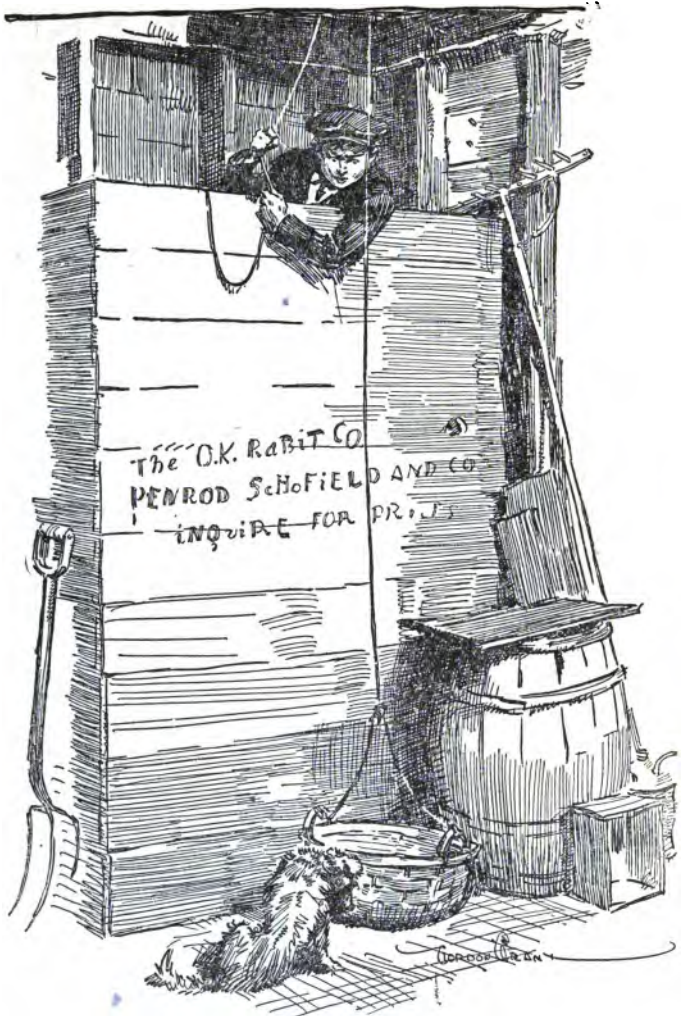 The O.K. RaBiT CO
PENROD ScHoFiELD AND CO
iNQuiRE FOR PRicES
GORDON GRANT